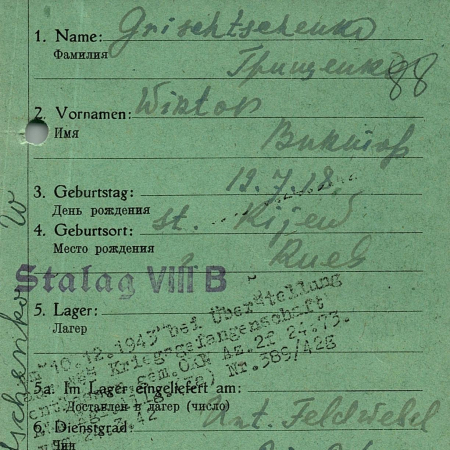 1. Name: Grischtschenko
Фамилия Грищенко 88
2. Vornamen: Wiktor
Имя Виктор
3. Geburtstag: 19.7.18.
День рождения
4. Geburtsort: st. Kijew
Место рождения Киев
Stalag VIII B
5. Lager:
Лагер
10.12.1943 bei Überstellung
Kriegsgefangenschaft
gem. OKW Az. 2f 24.73.
Nr. 389/42g
5a. Im Lager eingeliefert am:
Доставлен в лагер (число)
6. Dienstgrad: Unt. Feldwebel
Чин